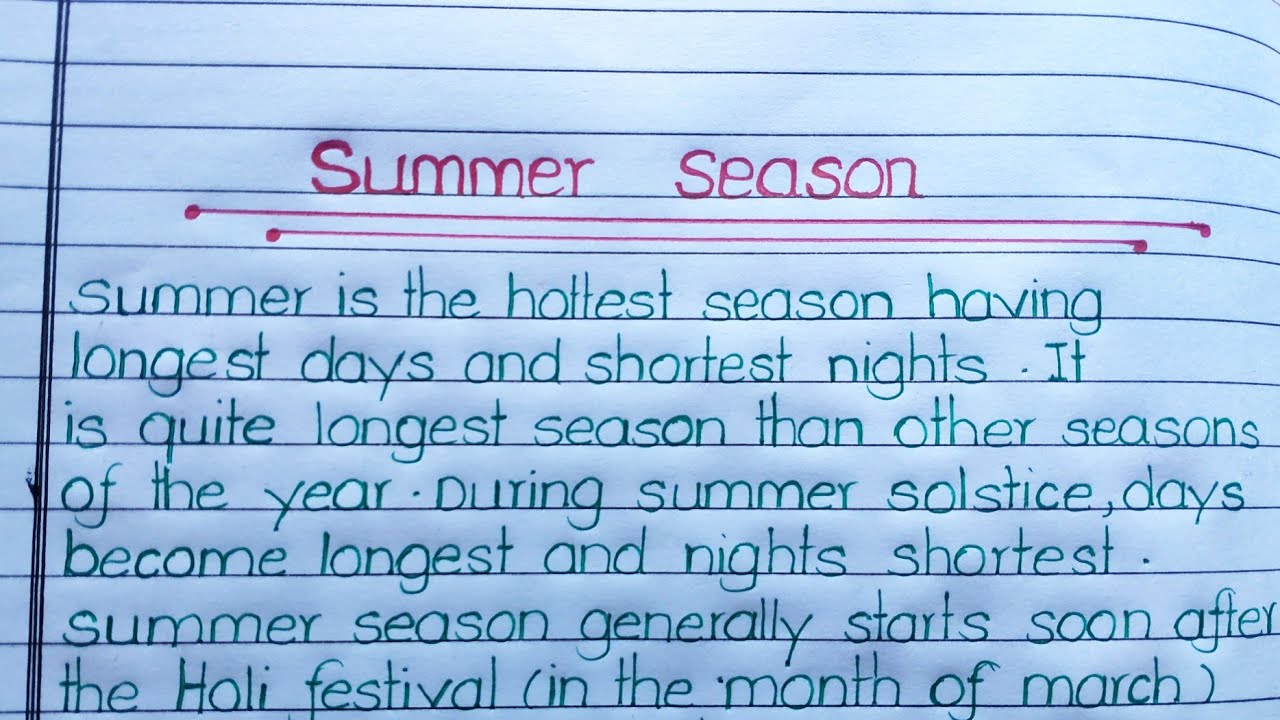 Summer season
summer is the hottest season having
longest days and shortest nights . It
is quite longest season than other seasons
of the year . During summer solstice, days
become longest and nights shortest .
summer season generally starts soon after
the Holi festival (in the month of march)